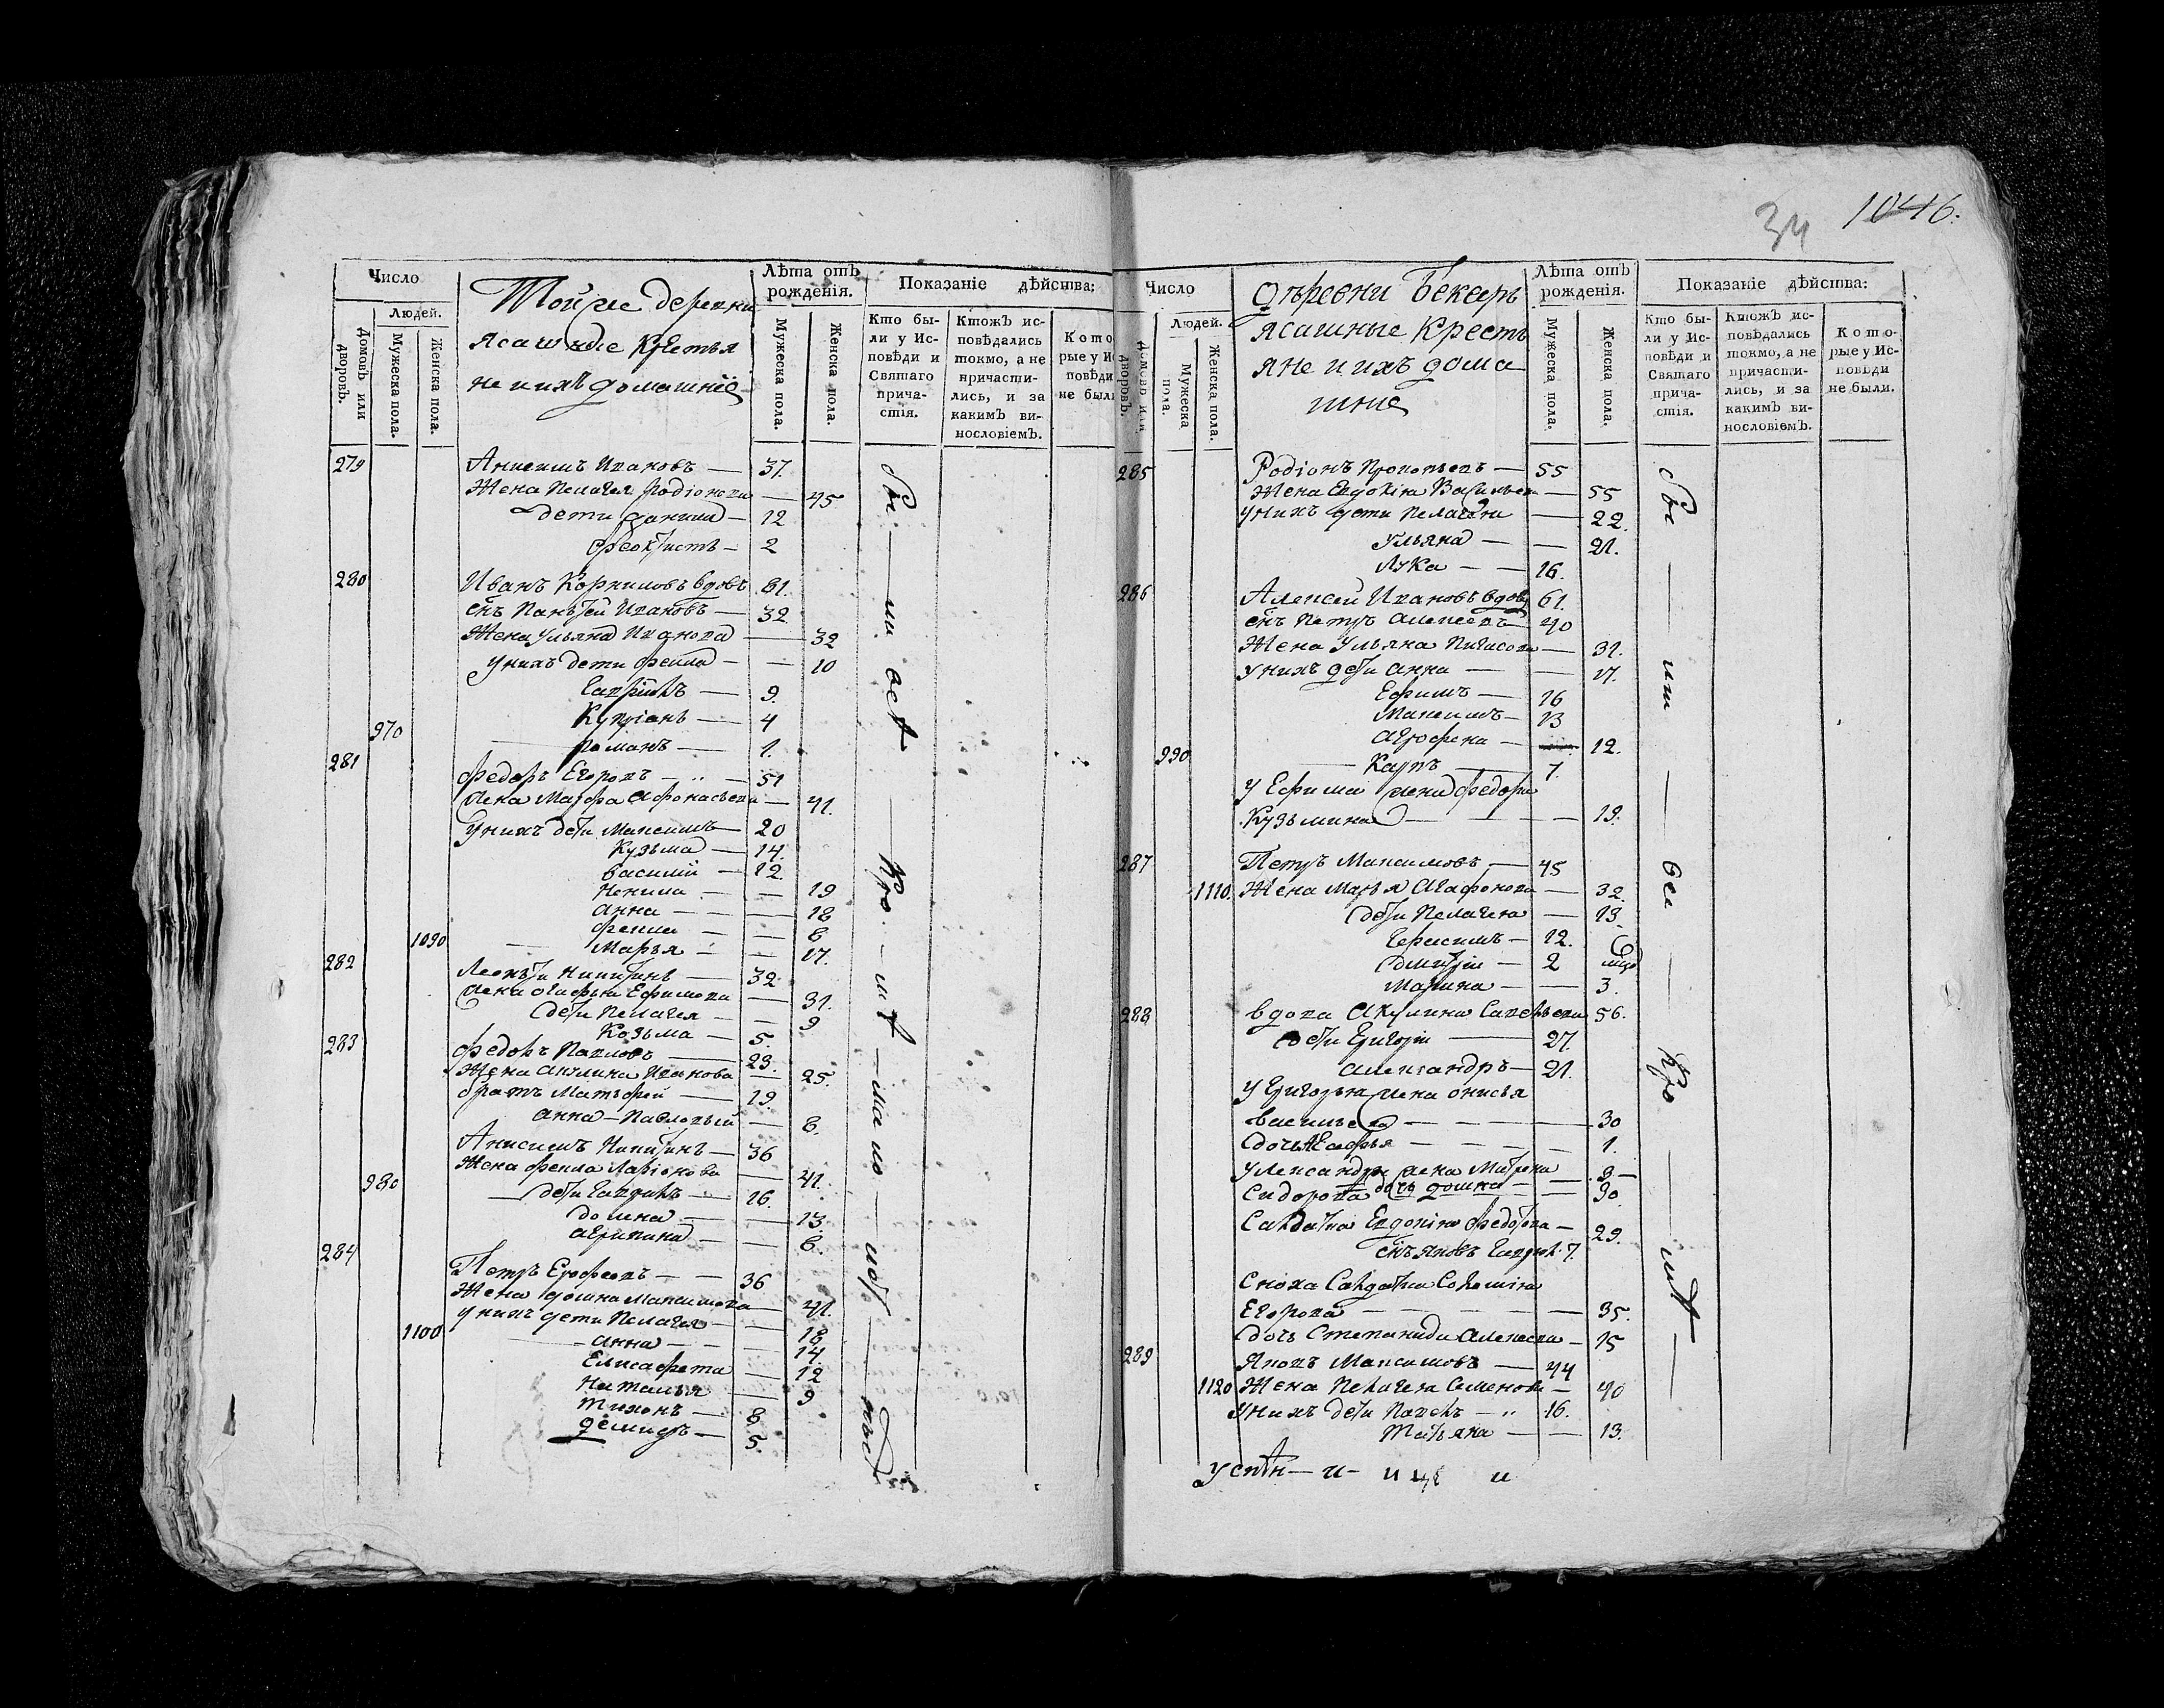 34 1046.
Число
Людей.
Домовъ или дворовъ.
Мужеска пола.
Женска пола.
Тойже деревни
ясашные Крестья
не и ихъ домашніе
Лѣта отъ рожденія.
Мужеска пола.
Женска пола.
Показаніе дѣйства:
Кто бы-
ли у Ис-
повѣди и
Святаго
прича-
стія.
Ктожъ ис-
повѣдались
токмо, а не
причасти-
лись, и за
какимъ ви-
нословіемъ.
Кото
рые у Ис
повѣди
не был
279 Анисимъ Ивановъ — 37.
Жена Пелагея Родіонова — 45
дети Данила — 12
Феоктистъ — 2
280 Иванъ Корниловъ вдовъ 61.
снъ Пантѣй Ивановъ — 32
Жена Ульяна Иванова — 32
У нихъ дети Фекла — — 10
Гаврилъ — 9.
Купріянъ — 4
970 Романъ — 1.
281 Федоръ Егоровъ — 51
жена Марфа Афонасьева — 41.
У нихъ дети Максимъ — 20
Кузьма — 14.
Василий — 12.
Ненила — — 19
Анна — — 18
Фекла — — 8
1090 Марья — — 17.
282 Леонтѣй Никитинъ — 32
жена Агафья Ефимова — 31.
дети Пелагея — — 9
Козьма — 5.
283 Федоръ Павловъ — 23.
Жена Акулина Иванова — 25.
братъ Матвѣй — 19.
Анна — Павловы — 8.
Анисимъ Никитинъ — 36
Жена Фекла Ларіонова — 41.
980 дети Гаврилъ — 16.
Домна — — 13.
Агрипина — — 6.
284 Петръ Ерофеевъ — — 36
Жена Домна Максимова — 41.
У нихъ дети Пелагея — 18
1100 Анна — — 14.
Елисафета — 12
Наталья — 9
Тихонъ — 8
Демидъ — 5.
Число
Людей.
Домовъ или дворовъ.
Мужеска пола.
Женска пола.
Деревни Бекетъ
ясашные Кресть
яне и ихъ дома
шніе
Лѣта отъ рожденія.
Мужеска пола.
Женска пола.
Показаніе дѣйства:
Кто бы-
ли у Ис-
повѣди и
Святаго
прича-
стія.
Ктожъ ис-
повѣдались
токмо, а не
причасти-
лись, и за
какимъ ви-
нословіемъ.
Кото-
рые у Ис-
повѣди
не были.
285 Родіонъ Прокопьевъ — 55
Жена Евдокія Васильева — 55
У нихъ дети Пелагея — 22.
Ульяна — — 21.
Лука — — 16.
286 Алексей Ивановъ вдовъ 61.
снъ Петръ Алексеевъ — 40
Жена Ульяна — 31.
У нихъ дети Анна — — 17.
Ефимъ — 16
Максимъ — 13
Агрофена — 12.
990 Карпъ — 7.
У Ефима жена Федора
Кузьмина — — — 19.
287 Петръ Максимовъ — 45
1110. Жена Марья Агафонова — 32.
дети Пелагея — 13.
Герасимъ — 12.
Дмитрій — 2
Марина — — 3.
288 Вдова Акулина Савельева 56.
дети Григорій — 27.
Александръ — 21.
У Григорья жена Онисья
Васильева — — — 30
дочь Агафья — — — 1.
У Александра жена Матрена
Сидорова дочь Домна — — 30.
Салдатка Евдокія Федотова — 29.
снъ Яковъ Гаврил. 7.
Сноха Салдатка Соломія
Егорова — — — 35.
дочь Степанида Алексеева — 15
289 Яковъ Максимовъ — 44
1120 Жена Пелагея Семенова — 40
У нихъ дети Павелъ — 16.
Татьяна — — 13.